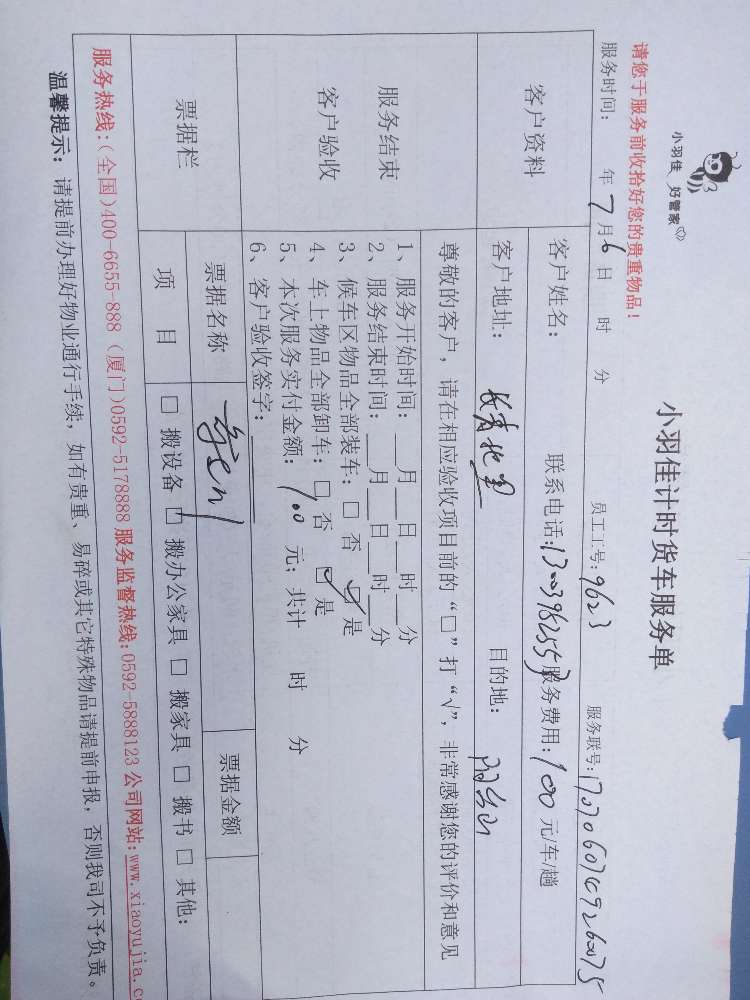 小羽佳 好管家
小羽佳计时货车服务单
请您于服务前收拾好您的贵重物品！
服务时间： 年7月6日 时 分 员工工号：9623 服务联号：
客户资料
客户姓名： 联系电话： 服务费用：100元/车/趟
客户地址： 目的地：
服务结束
客户验收
尊敬的客户，请在相应验收项目前的“□”打“√”，非常感谢您的评价和意见
1、服务开始时间：___月___日___时___分
2、服务结束时间：___月___日___时___分
3、候车区物品全部装车：□ 否 ☑ 是
4、车上物品全部卸车：□ 否 ☑ 是
5、本次服务实付金额：100 元；共计 时 分
6、客户验收签字：
票据栏
票据名称 票据金额
项 目 □ 搬设备 □ 搬办公家具 □ 搬家具 □ 搬书 □ 其他：
服务热线：（全国）400-6655-888（厦门）0592-5178888 服务监督热线：0592-5888123 公司网站：www.xiaoyujia.c
温馨提示：请提前办理好物业通行手续，如有贵重、易碎或其它特殊物品请提前申报，否则我司不予负责。